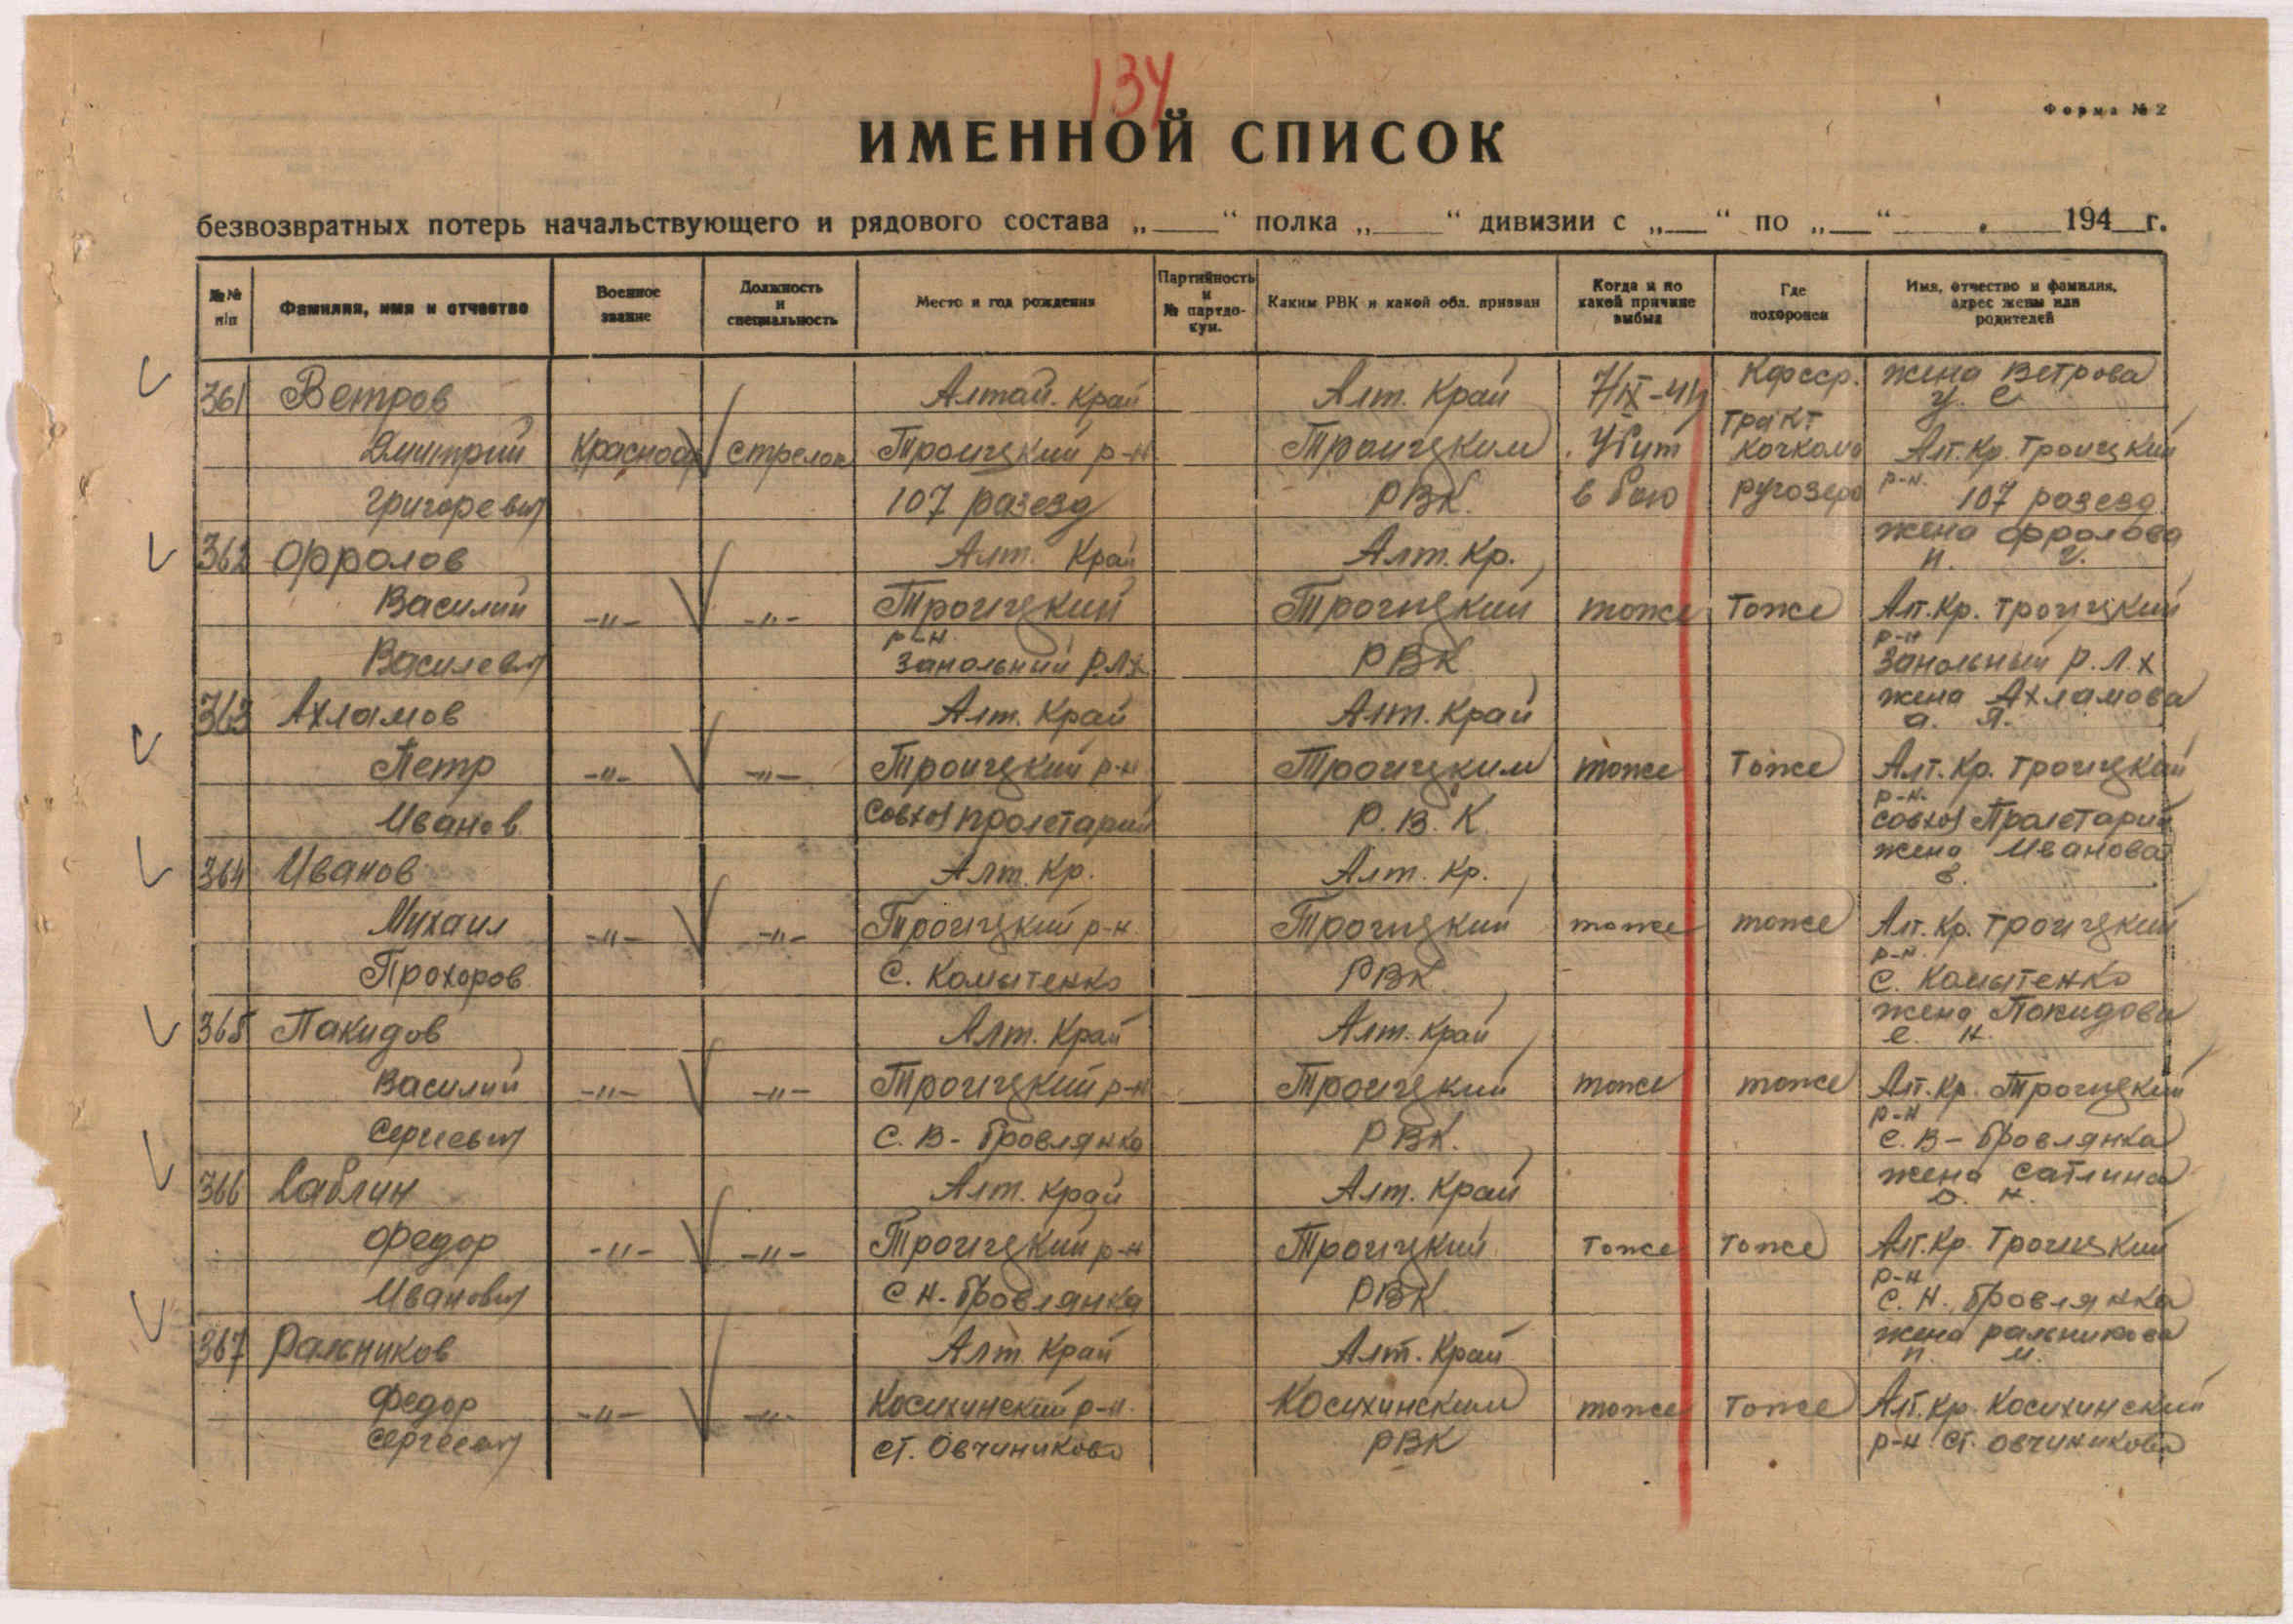 134
Форма № 2
ИМЕННОЙ СПИСОК
безвозвратных потерь начальствующего и рядового состава „____“ полка „____“ дивизии с „___“ по „___“ ______ 194__г.
№№ п/п
Фамилия, имя и отчество
Военное звание
Должность и специальность
Место и год рождения
Партийность и № партдокум.
Каким РВК и какой обл. призван
Когда и по какой причине выбыл
Где похоронен
Имя, отчество и фамилия, адрес жены или родителей
361 Ветров Алтай. Край Алт. Край 7/IX-41 Кфсср. жена Ветрова
У. С
Дмитрий Красноар стрелок Троицкий р-н Троицким Убит тракт Кочкома Алт. Кр. Троицкий
Григоревич 107 разезд РВК. в бою ругозеро р-н. 107 разезд
362 Фролов Алт. Край Алт. Кр. жена Фролова
Н. Г.
Василий -"- -"- Троицкий Троицкий тоже Тоже Алт. Кр. Троицкий
Василевич р-н. Занольний Р.Л.Х РВК р-н Занольный Р.Л.Х
363 Ахламов Алт. Край Алт. Край жена Ахламова
А. Я.
Петр -"- -"- Троицкий р-н Троицким тоже Тоже Алт. Кр. Троицкий
Иванов Совхоз Пролетарий Р. В. К р-н. совхоз Пролетарий
364 Иванов Алт. Кр. Алт. Кр. жена Иванова
Михаил -"- -"- Троицкий р-н. Троицкий тоже тоже Алт. Кр. Троицкий
Прохоров С. Комытенко РВК р-н. С. Комытенко
365 Пакидов Алт. Край Алт. Край жена Пакидова
Е. Н.
Василий -"- -"- Троицкий р-н Троицкий тоже тоже Алт. Кр. Троицкий
Сергеевич С. В-Бровлянка РВК. р-н С. В-Бровлянка
366 Саблин Алт. Край Алт. Край жена Саблина
Н.
Федор -"- -"- Троицкий р-н Троицкий Тоже Тоже Алт. Кр. Троицкий
Иванович С. Н-Бровлянка РВК р-н С. Н. Бровлянка
367 Ральников Алт. Край Алт. Край жена Ральникова
П. И.
Федор -"- -"- Косихинский р-н. Косихинским тоже Тоже Алт. Кр. Косихинский
Сергеевич ст. Овчиниково РВК р-н ст. Овчиниково